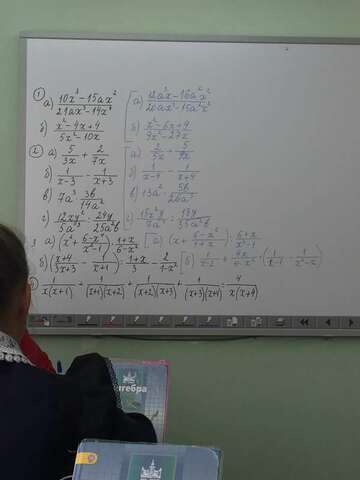 1 а) (10x² - 15ax²)/(21ax³ - 14x³) а) (12ax - 16ax²)/(20ax³ - 15a²x²)
б) (x² - 4x + 4)/(5x² - 10x) б) (x² - 6x + 9)/(9x² - 27x)
2 а) 5/3x + 2/7x а) 2/5x + 5/7x
б) 1/(x-3) - 1/(x+3) б) 1/(x-4) - 1/(x+4)
в) 7a³ · 3b/14a² в) 13a² · 5b/26a³
г) 12xy²/5a³ : 24y/25a²b г) 15x²y/7a³ : 18y/35a²b
3 а) (x² + (6-x³)/(x²-1)) · (1+x)/(6-x²) а) (x + (6-x²)/(1+x)) : (6+x)/(x²-1)
б) ((x+4)/(3x+3) - 1/(x+1)) : (1+x)/3 - 2/(1-x²) б) 1/(x-2) + 4x/(4-x²) · (1/(x-2) - 1/(x²-x))
1/(x(x+1)) + 1/((x+1)(x+2)) + 1/((x+2)(x+3)) + 1/((x+3)(x+4)) = 4/(x(x+4))
алгебра